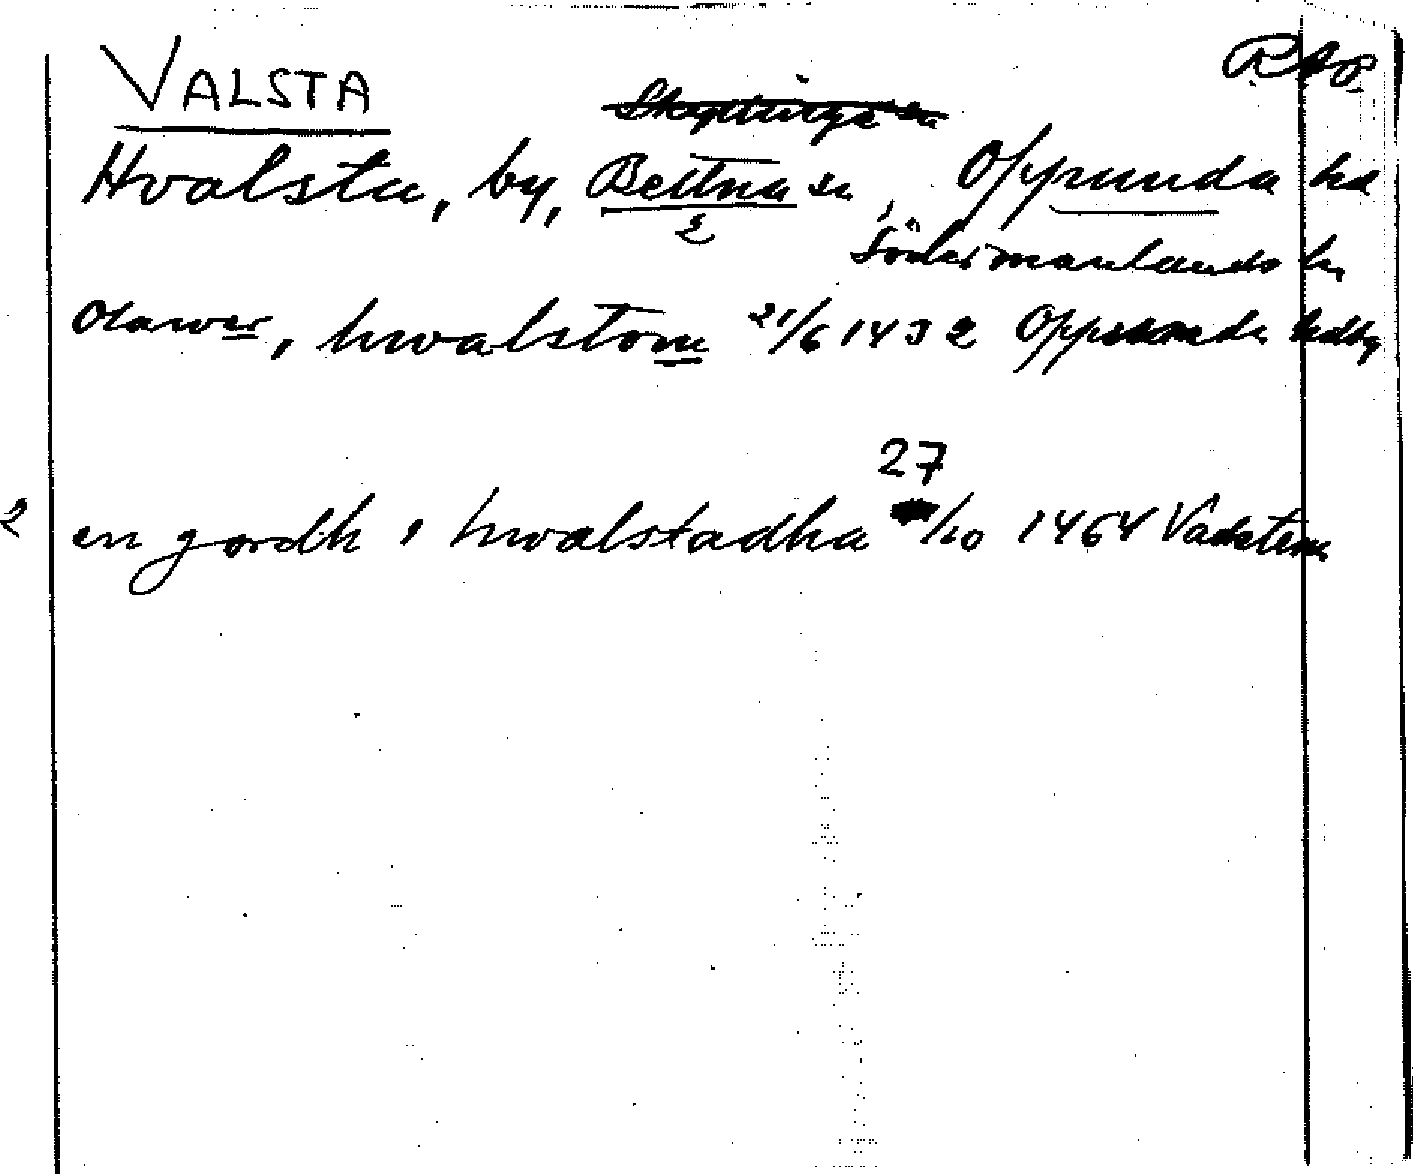 VALSTA RAP
Hvalsta, by, Bettna sn, Oppunda hd
2
Södermanlands ln
Olawer i hwalstom 21/6 1432 Oppunda
27
2 en gordh i hwalstadha /10 1464 Vadstena